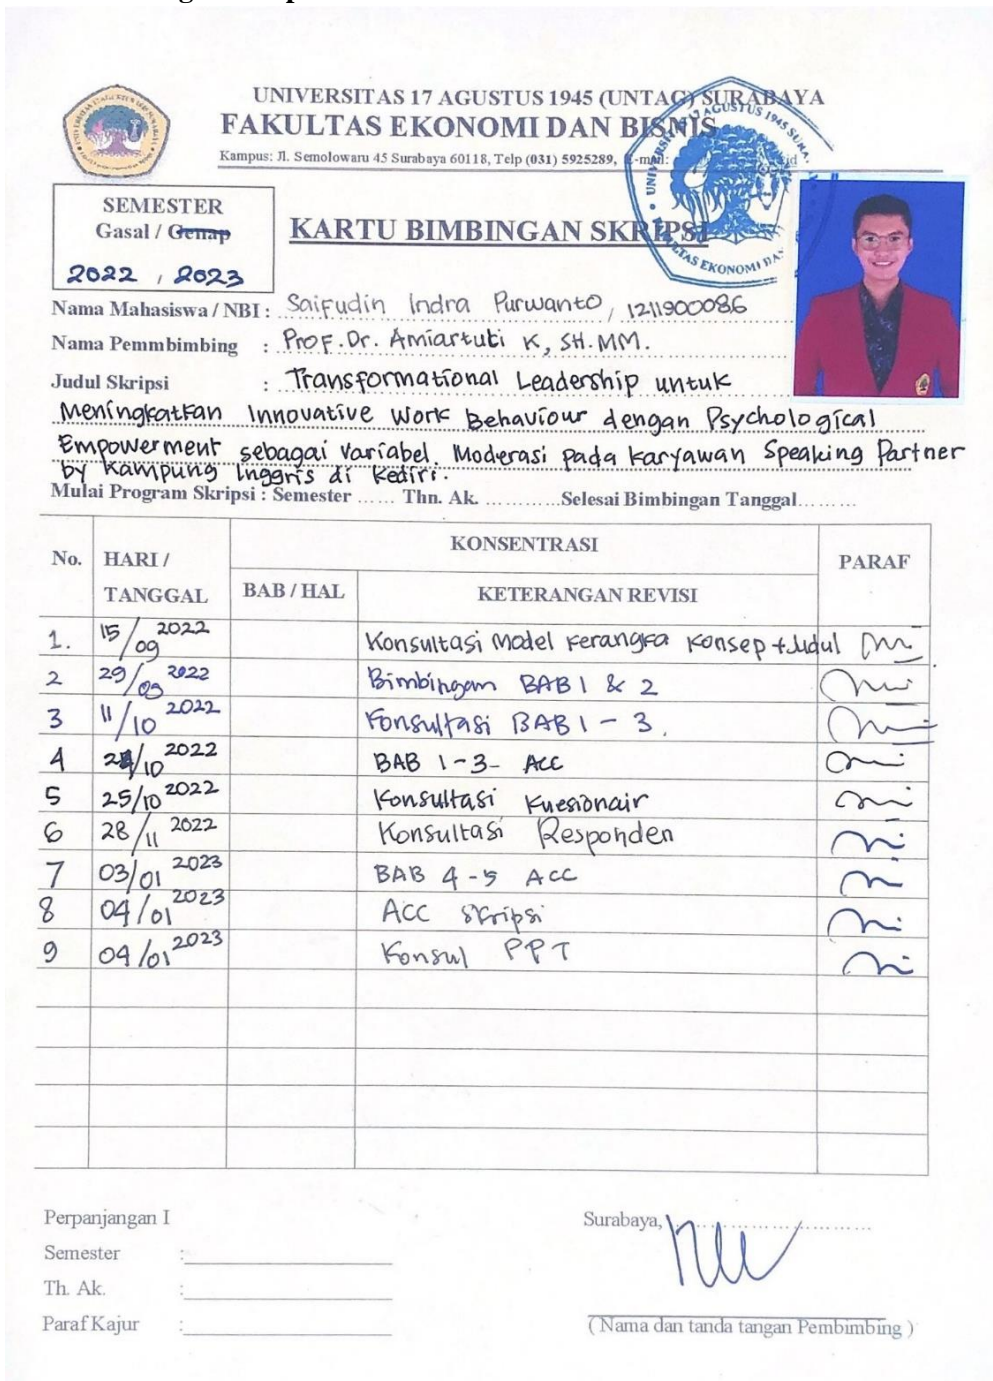 UNIVERSITAS 17 AGUSTUS 1945 (UNTAG) SURABAYA
FAKULTAS EKONOMI DAN BISNIS
Kampus: Jl. Semolowaru 45 Surabaya 60118, Telp (031) 5925289, E-mail:
SEMESTER
Gasal / Genap
2022 , 2023
KARTU BIMBINGAN SKRIPSI
Nama Mahasiswa / NBI : Saifudin Indra Purwanto, 1211900086
Nama Pemmbimbing : Prof. Dr. Amiartuti K, SH. MM.
Judul Skripsi : Transformational Leadership untuk
Meningkatkan Innovative Work Behaviour dengan Psychological
Empowerment sebagai Variabel Moderasi pada karyawan Speaking Partner
by Kampung Inggris di Kediri.
Mulai Program Skripsi : Semester ...... Thn. Ak. ............Selesai Bimbingan Tanggal.........
No. HARI / TANGGAL KONSENTRASI PARAF
BAB / HAL KETERANGAN REVISI
1. 15/09 2022 Konsultasi Model Kerangka Konsep + Judul
2 29/09 2022 Bimbingan BAB 1 & 2
3 11/10 2022 Konsultasi BAB 1 - 3.
4 /10 2022 BAB 1-3- ACC
5 25/10 2022 Konsultasi Kuesionair
6 28/11 2022 Konsultasi Responden
7 03/01 2023 BAB 4-5 ACC
8 04/01 2023 ACC skripsi
9 04/01 2023 Konsul PPT
Perpanjangan I
Semester :
Th. Ak. :
Paraf Kajur :
Surabaya,
( Nama dan tanda tangan Pembimbing )